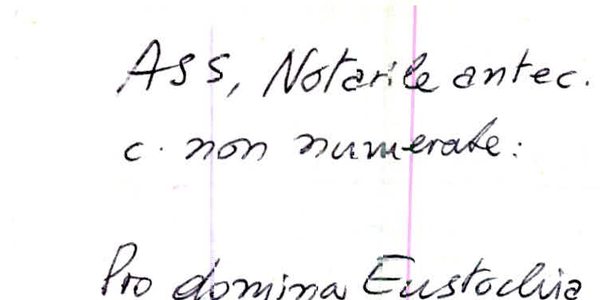 ASS, Notarile antec.
c. non numerate:
Pro domina Eustochia